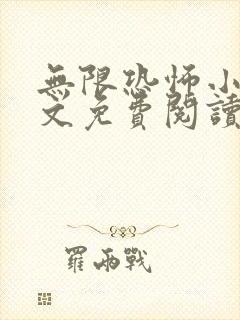 無限恐怖小
文免費閱讀
羅雨戰